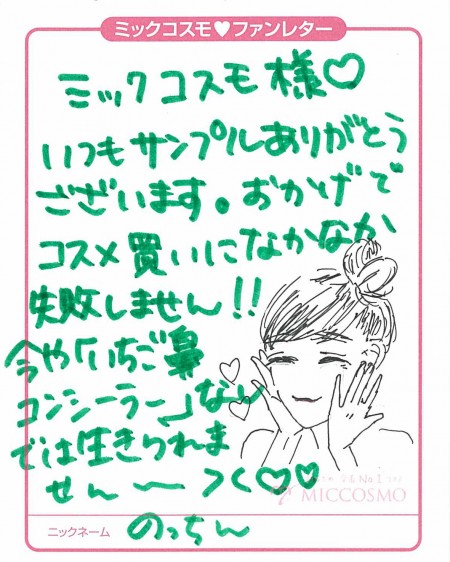 ミックコスモ♥ファンレター
ミックコスモ様♡
いつもサンプルありがとう
ございます。おかげで
コスメ買いになかなか
失敗しません!!
今や「いちご鼻
コンシーラー」なし
では生きられま
せん〜つく♡♡
MICCOSMO
ニックネーム のっちん